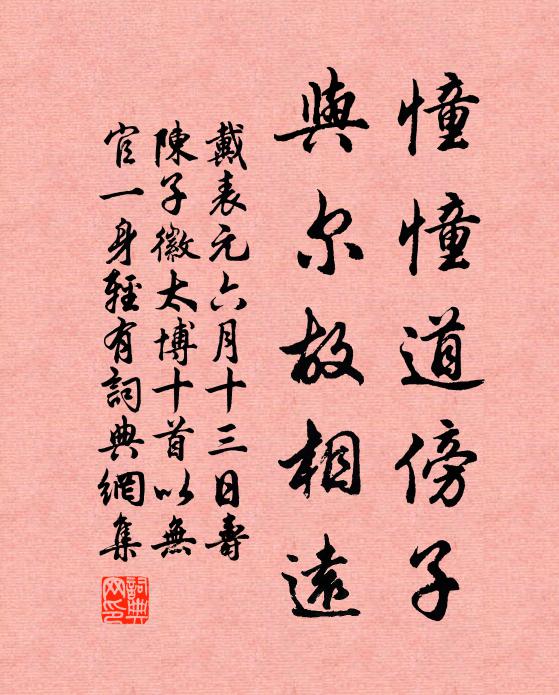 憧憧道傍子
與尔故相遠
戴表元六月十三日壽
陳子徽太博十首以無
官一身輕有詞典網集
詞典网印